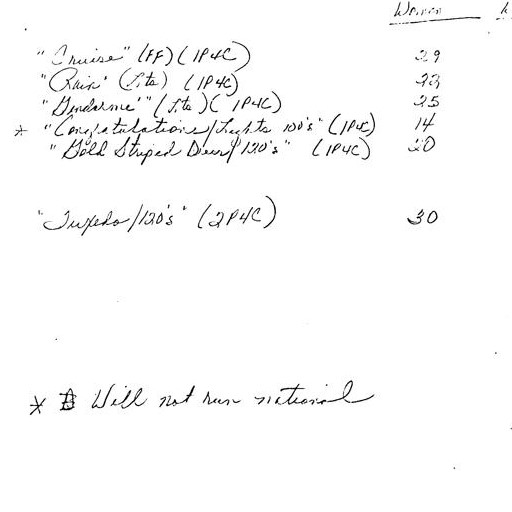 Women
"Cruise" (FF) (1P4C) 29
"Rain" (Lts) (1P4C) 22
"Gendarme" (Lts) (1P4C) 25
* "Congratulations/Lights 100's" (1P4C) 14
"Gold Striped Door/120's" (1P4C) 20
"Tuxedo/120's" (2P4C) 30
* Will not run national